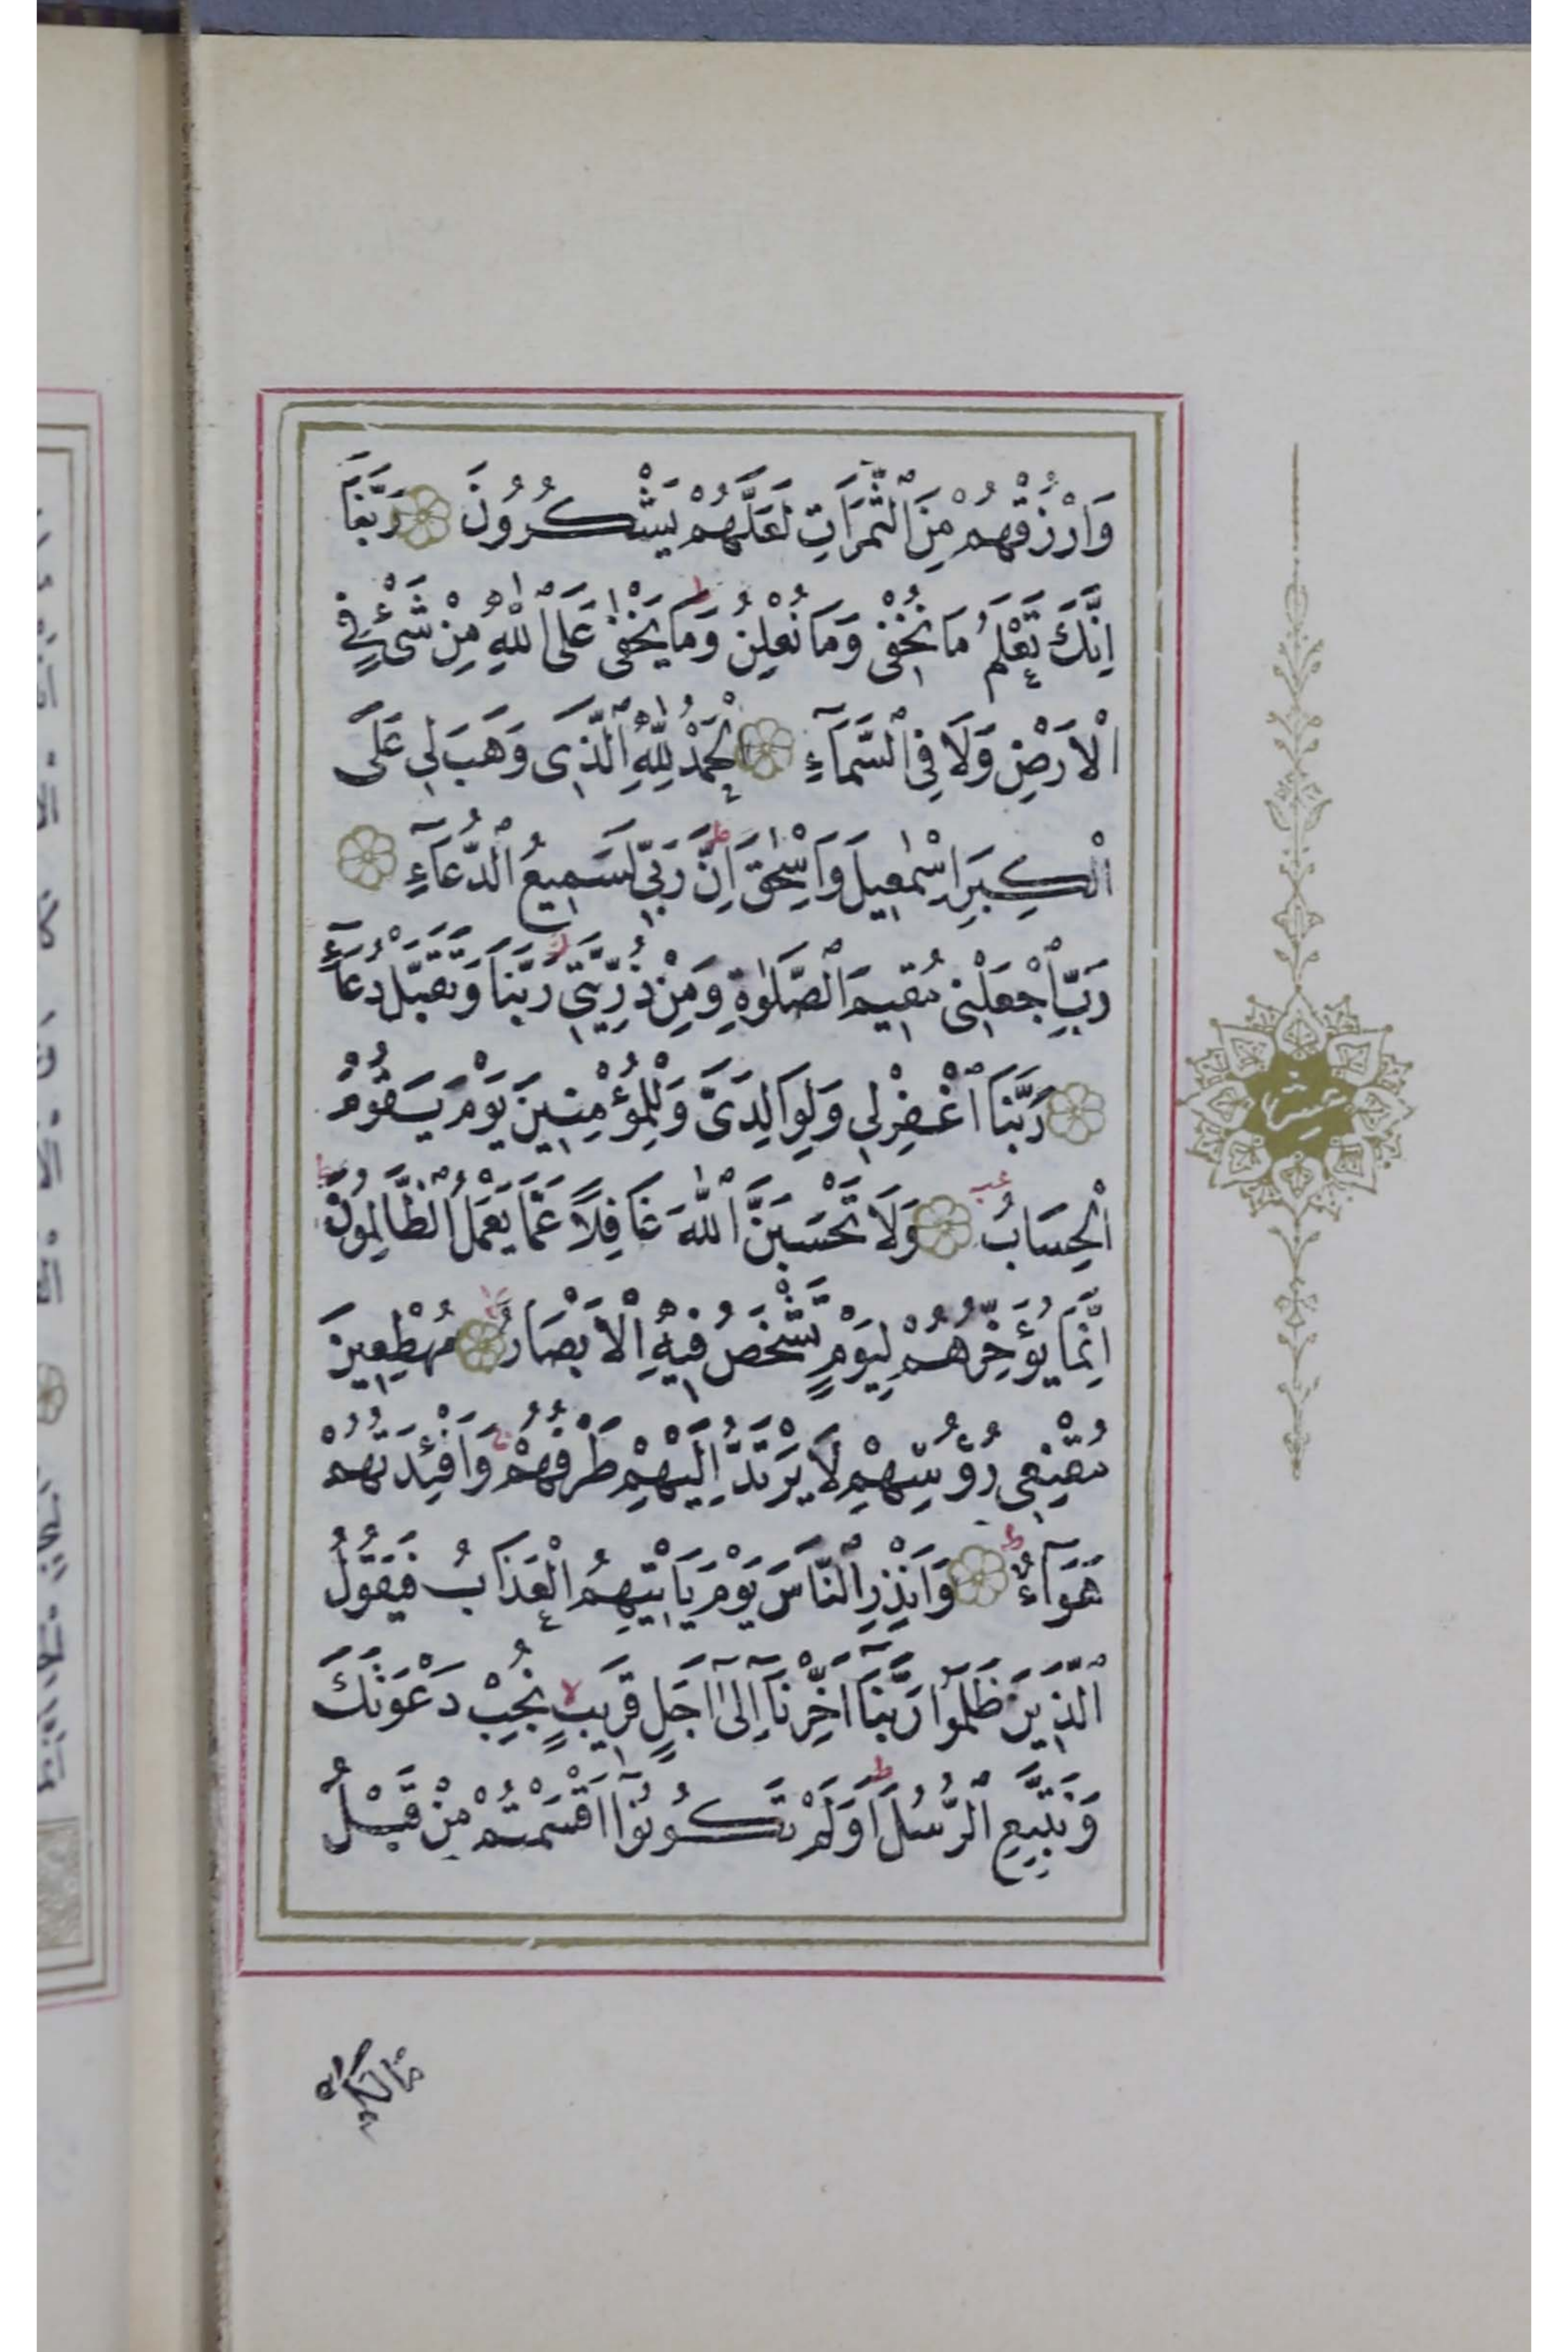 وَارْزُقْهُمْ مِنَ ٱلثَّمَرَاتِ لَعَلَّهُمْ يَشْكُرُونَ رَبَّنَا
اِنَّكَ تَعْلَمُ مَا نُخْفٖى وَمَا نُعْلِنُ ط وَمَا يَخْفٰى عَلَى ٱللّٰهِ مِنْ شَىْءٍ فِى
ٱلْاَرْضِ وَلَا فِى ٱلسَّمَآءِ اَلْحَمْدُ لِلّٰهِ ٱلَّذٖى وَهَبَ لٖى عَلَى
ٱلْكِبَرِ اِسْمٰعٖيلَ وَاِسْحٰقَ ط اِنَّ رَبّٖى لَسَمٖيعُ ٱلدُّعَآءِ
رَبِّ ٱجْعَلْنٖى مُقٖيمَ ٱلصَّلٰوةِ وَمِنْ ذُرِّيَّتٖى رَبَّنَا وَتَقَبَّلْ دُعَآءِ
رَبَّنَا ٱغْفِرْلٖى وَلِوَالِدَىَّ وَلِلْمُؤْمِنٖينَ يَوْمَ يَقُومُ
ٱلْحِسَابُ عب وَلَا تَحْسَبَنَّ ٱللّٰهَ غَافِلًا عَمَّا يَعْمَلُ ٱلظَّالِمُونَ ط
اِنَّمَا يُؤَخِّرُهُمْ لِيَوْمٍ تَشْخَصُ فٖيهِ ٱلْاَبْصَارُ لا مُهْطِعٖينَ
مُقْنِعٖى رُؤُسِهِمْ لَا يَرْتَدُّ اِلَيْهِمْ طَرْفُهُمْ ج وَاَفْئِدَتُهُمْ
هَوَآءٌ ط وَاَنْذِرِ ٱلنَّاسَ يَوْمَ يَاْتٖيهِمُ ٱلْعَذَابُ فَيَقُولُ
ٱلَّذٖينَ ظَلَمُوا رَبَّنَآ اَخِّرْنَآ اِلٰٓى اَجَلٍ قَرٖيبٍ لا نُجِبْ دَعْوَتَكَ
وَنَتَّبِعِ ٱلرُّسُلَ ط اَوَلَمْ تَكُونُوٓا اَقْسَمْتُمْ مِنْ قَبْلُ
مَالَكُمْ